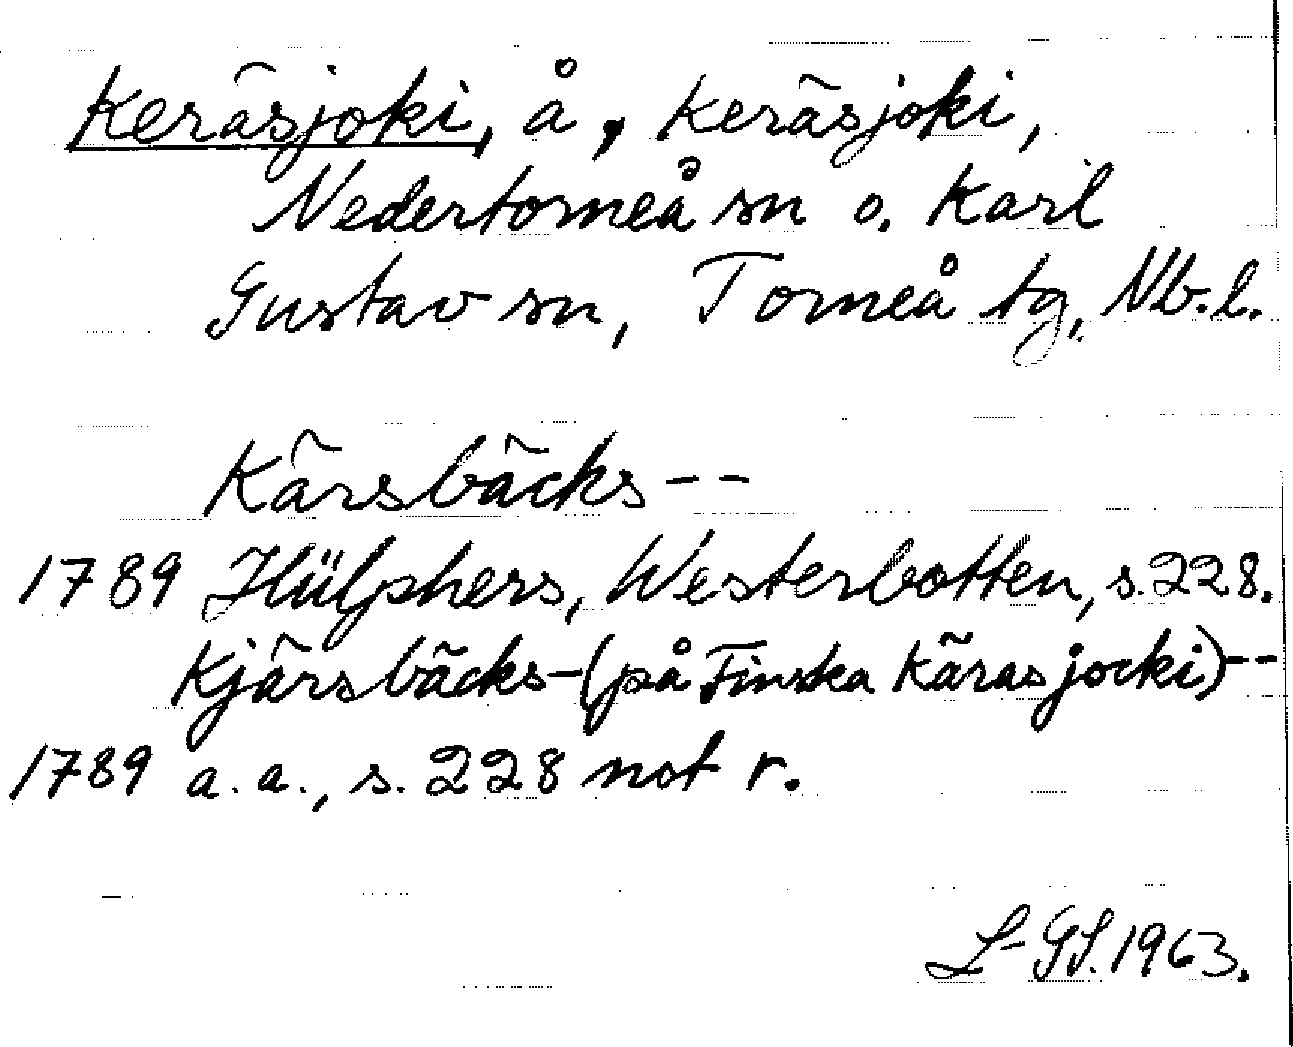 Keräsjoki, å, Keräsjoki,
Nedertorneå sn o. Karl
Gustav sn, Torneå tg, Nb.l.
Kärsbäcks--
1789 Hülphers, Westerbotten, s. 228.
Kjärsbäcks-(på Finska Kärasjocki)--
1789 a.a., s. 228 not r.
L-GS. 1963.